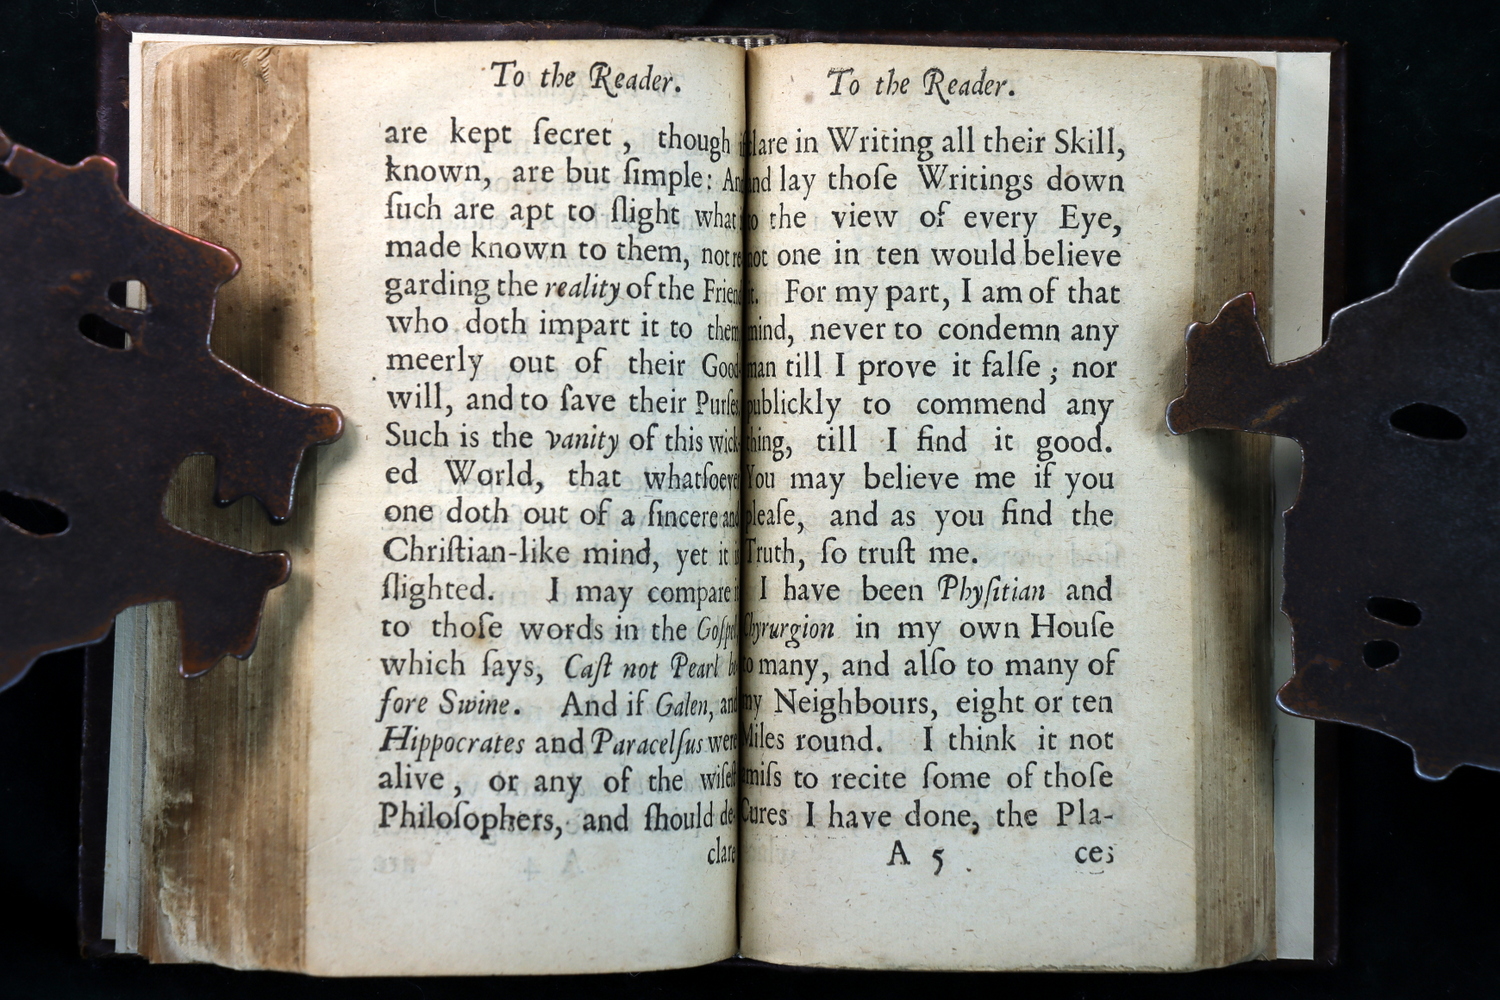 To the Reader.
are kept ſecret, though
known, are but ſimple: And
ſuch are apt to ſlight what
made known to them, not re
garding the reality of the Friend
who doth impart it to them
meerly out of their Good
will, and to ſave their Purſes.
Such is the vanity of this wick-
ed World, that whatſoever
one doth out of a ſincere and
Chriſtian-like mind, yet it is
ſlighted. I may compare it
to thoſe words in the Goſpel,
which ſays, Caſt not Pearl be
fore Swine. And if Galen, and
Hippocrates and Paracelſus were
alive, or any of the wiſeſt
Philoſophers, and ſhould de-
clare
To the Reader.
clare in Writing all their Skill,
and lay thoſe Writings down
to the view of every Eye,
not one in ten would believe
it. For my part, I am of that
mind, never to condemn any
man till I prove it falſe; nor
publickly to commend any
thing, till I find it good.
You may believe me if you
pleaſe, and as you find the
Truth, ſo truſt me.
I have been Phyſitian and
Chyrurgion in my own Houſe
to many, and alſo to many of
my Neighbours, eight or ten
Miles round. I think it not
amiſs to recite ſome of thoſe
Cures I have done, the Pla-
A 5 ces